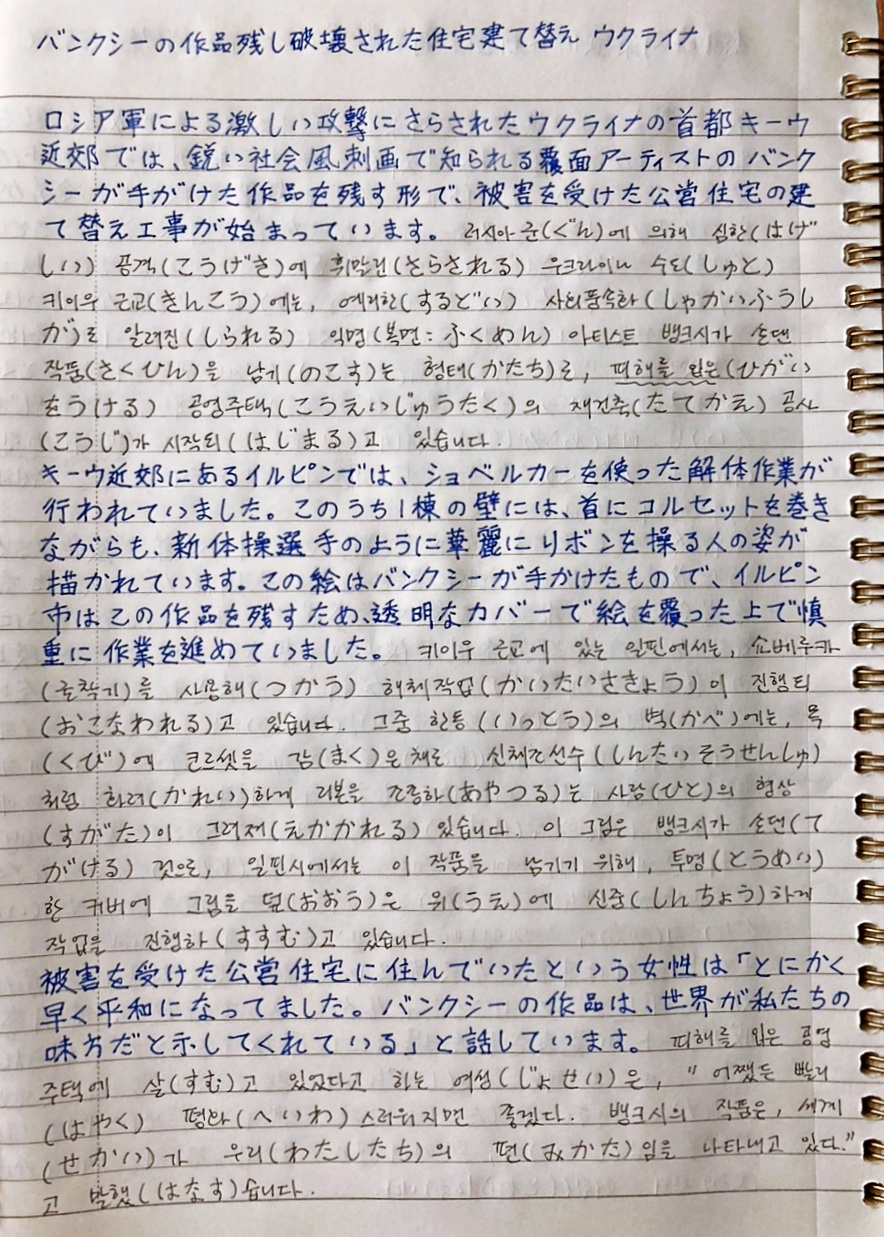 バンクシーの作品残し破壊された住宅建て替え ウクライナ
ロシア軍による激しい攻撃にさらされたウクライナの首都キーウ
近郊では、鋭い社会風刺画で知られる覆面アーティストのバンク
シーが手がけた作品を残す形で、被害を受けた公営住宅の建
て替え工事が始まっています。 러시아 군(ぐん)에 의해 심한(はげ
しい) 공격(こうげき)에 휘말린(さらされる) 우크라이나 수도(しゅと)
키이우 근교(きんこう)에는, 예리한(するどい) 사회풍속화(しゃかいふうし
が)로 알려진(しられる) 익명(복면:ふくめん) 아티스트 뱅크시가 손댄
작품(さくひん)을 남기(のこす)는 형태(かたち)로, 피해를 입은(ひがい
をうける) 공영주택(こうえいじゅうたく)의 재건축(たてかえ) 공사
(こうじ)가 시작되(はじまる)고 있습니다.
キーウ近郊にあるイルピンでは、ショベルカーを使った解体作業が
行われていました。このうち1棟の壁には、首にコルセットを巻き
ながらも、新体操選手のように華麗にリボンを操る人の姿が
描かれています。この絵はバンクシーが手かけたもので、イルピン
市はこの作品を残すため、透明なカバーで絵を覆った上で慎
重に作業を進めていました。 키이우 근교에 있는 일핀에서는, 쇼베루카
(굴착기)를 사용해(つかう) 해체작업(かいたいさきょう)이 진행되
(おこなわれる)고 있습니다. 그중 한동(いっとう)의 벽(かべ)에는, 목
(くび)에 코르셋을 감(まく)은 채로 신체조선수(しんたいそうせんしゅ)
처럼 화려(かれい)하게 리본을 조종하(あやつる)는 사람(ひと)의 형상
(すがた)이 그려져(えかかれる) 있습니다. 이 그림은 뱅크시가 손댄(て
がける) 것으로, 일핀시에서는 이 작품을 남기기 위해, 투명(とうめい)
한 커버에 그림을 덮(おおう)은 위(うえ)에 신중(しんちょう)하게
작업을 진행하(すすむ)고 있습니다.
被害を受けた公営住宅に住んでいたという女性は「とにかく
早く平和になってました。バンクシーの作品は、世界が私たちの
味方だと示してくれている」と話しています。 피해를 입은 공영
주택에 살(すむ)고 있었다고 하는 여성(じょせい)은, "어쨌든 빨리
(はやく) 평화(へいわ) 스러워지면 좋겠다. 뱅크시의 작품은, 세계
(せかい)가 우리(わたしたち)의 편(みかた)임을 나타내고 있다."
고 말했(はなす)습니다.